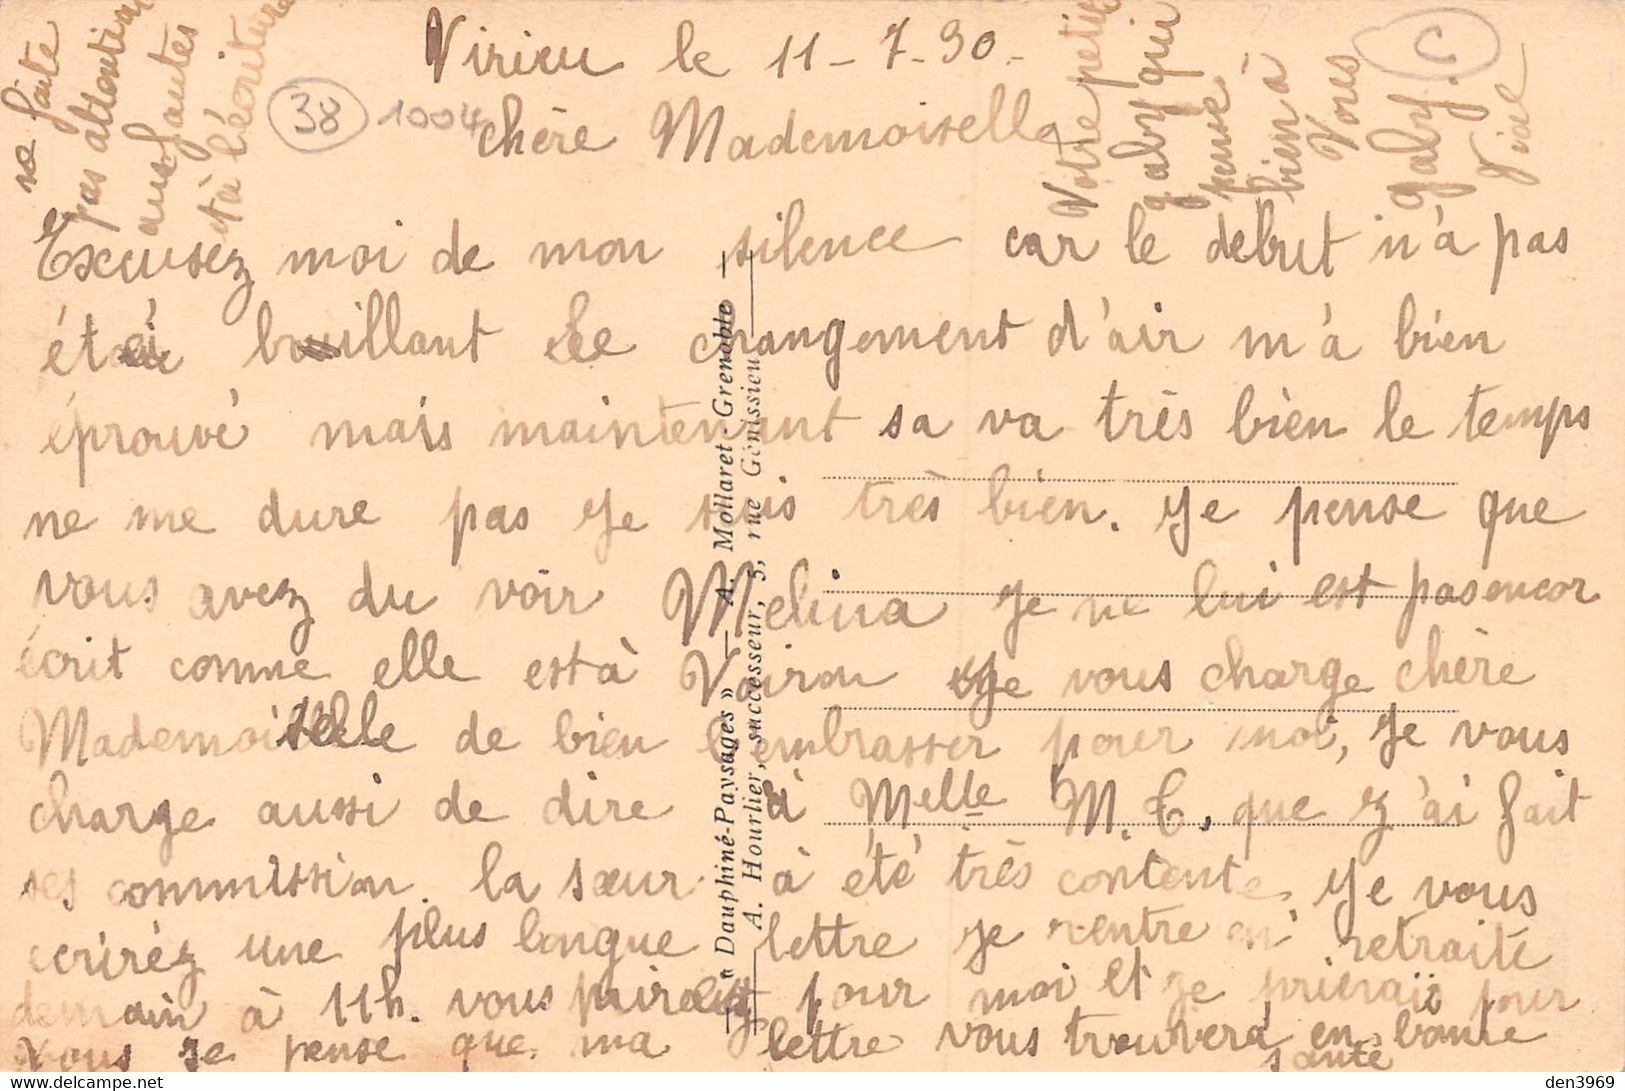 Virieu le 11-7-30.
chère Mademoiselle
Excusez moi de mon silence car le debut n'à pas
été bouillant Le changement d'air m'à bien
éprouvé mais maintenant sa va très bien le temps
ne me dure pas Je suis très bien. Je pense que
vous avez du voir Melina Je ne lui est pas encor
écrit comme elle est à Voiron Je vous charge chère
Mademoiselle de bien l'embrasser pour moi, Je vous
charge aussi de dire à Melle M. C. que j'ai fait
ses commission. la sœur à été très contente. Je vous
ecriréz une plus longue lettre je rentre en retraite
demain à 11h. vous prirez pour moi et je prierais pour
vous je pense que ma lettre vous trouvera en bonne
santé
Votre petite
gaby qui
pense
bien à
Vous
gaby.
ne faite
pas attention
aus fautes
et à l'écriture
38
1004
C
"Dauphiné-Paysages" — A. Mollaret-Grenoble —
A. Hourlier, successeur, 5, rue Génissieu
den3969